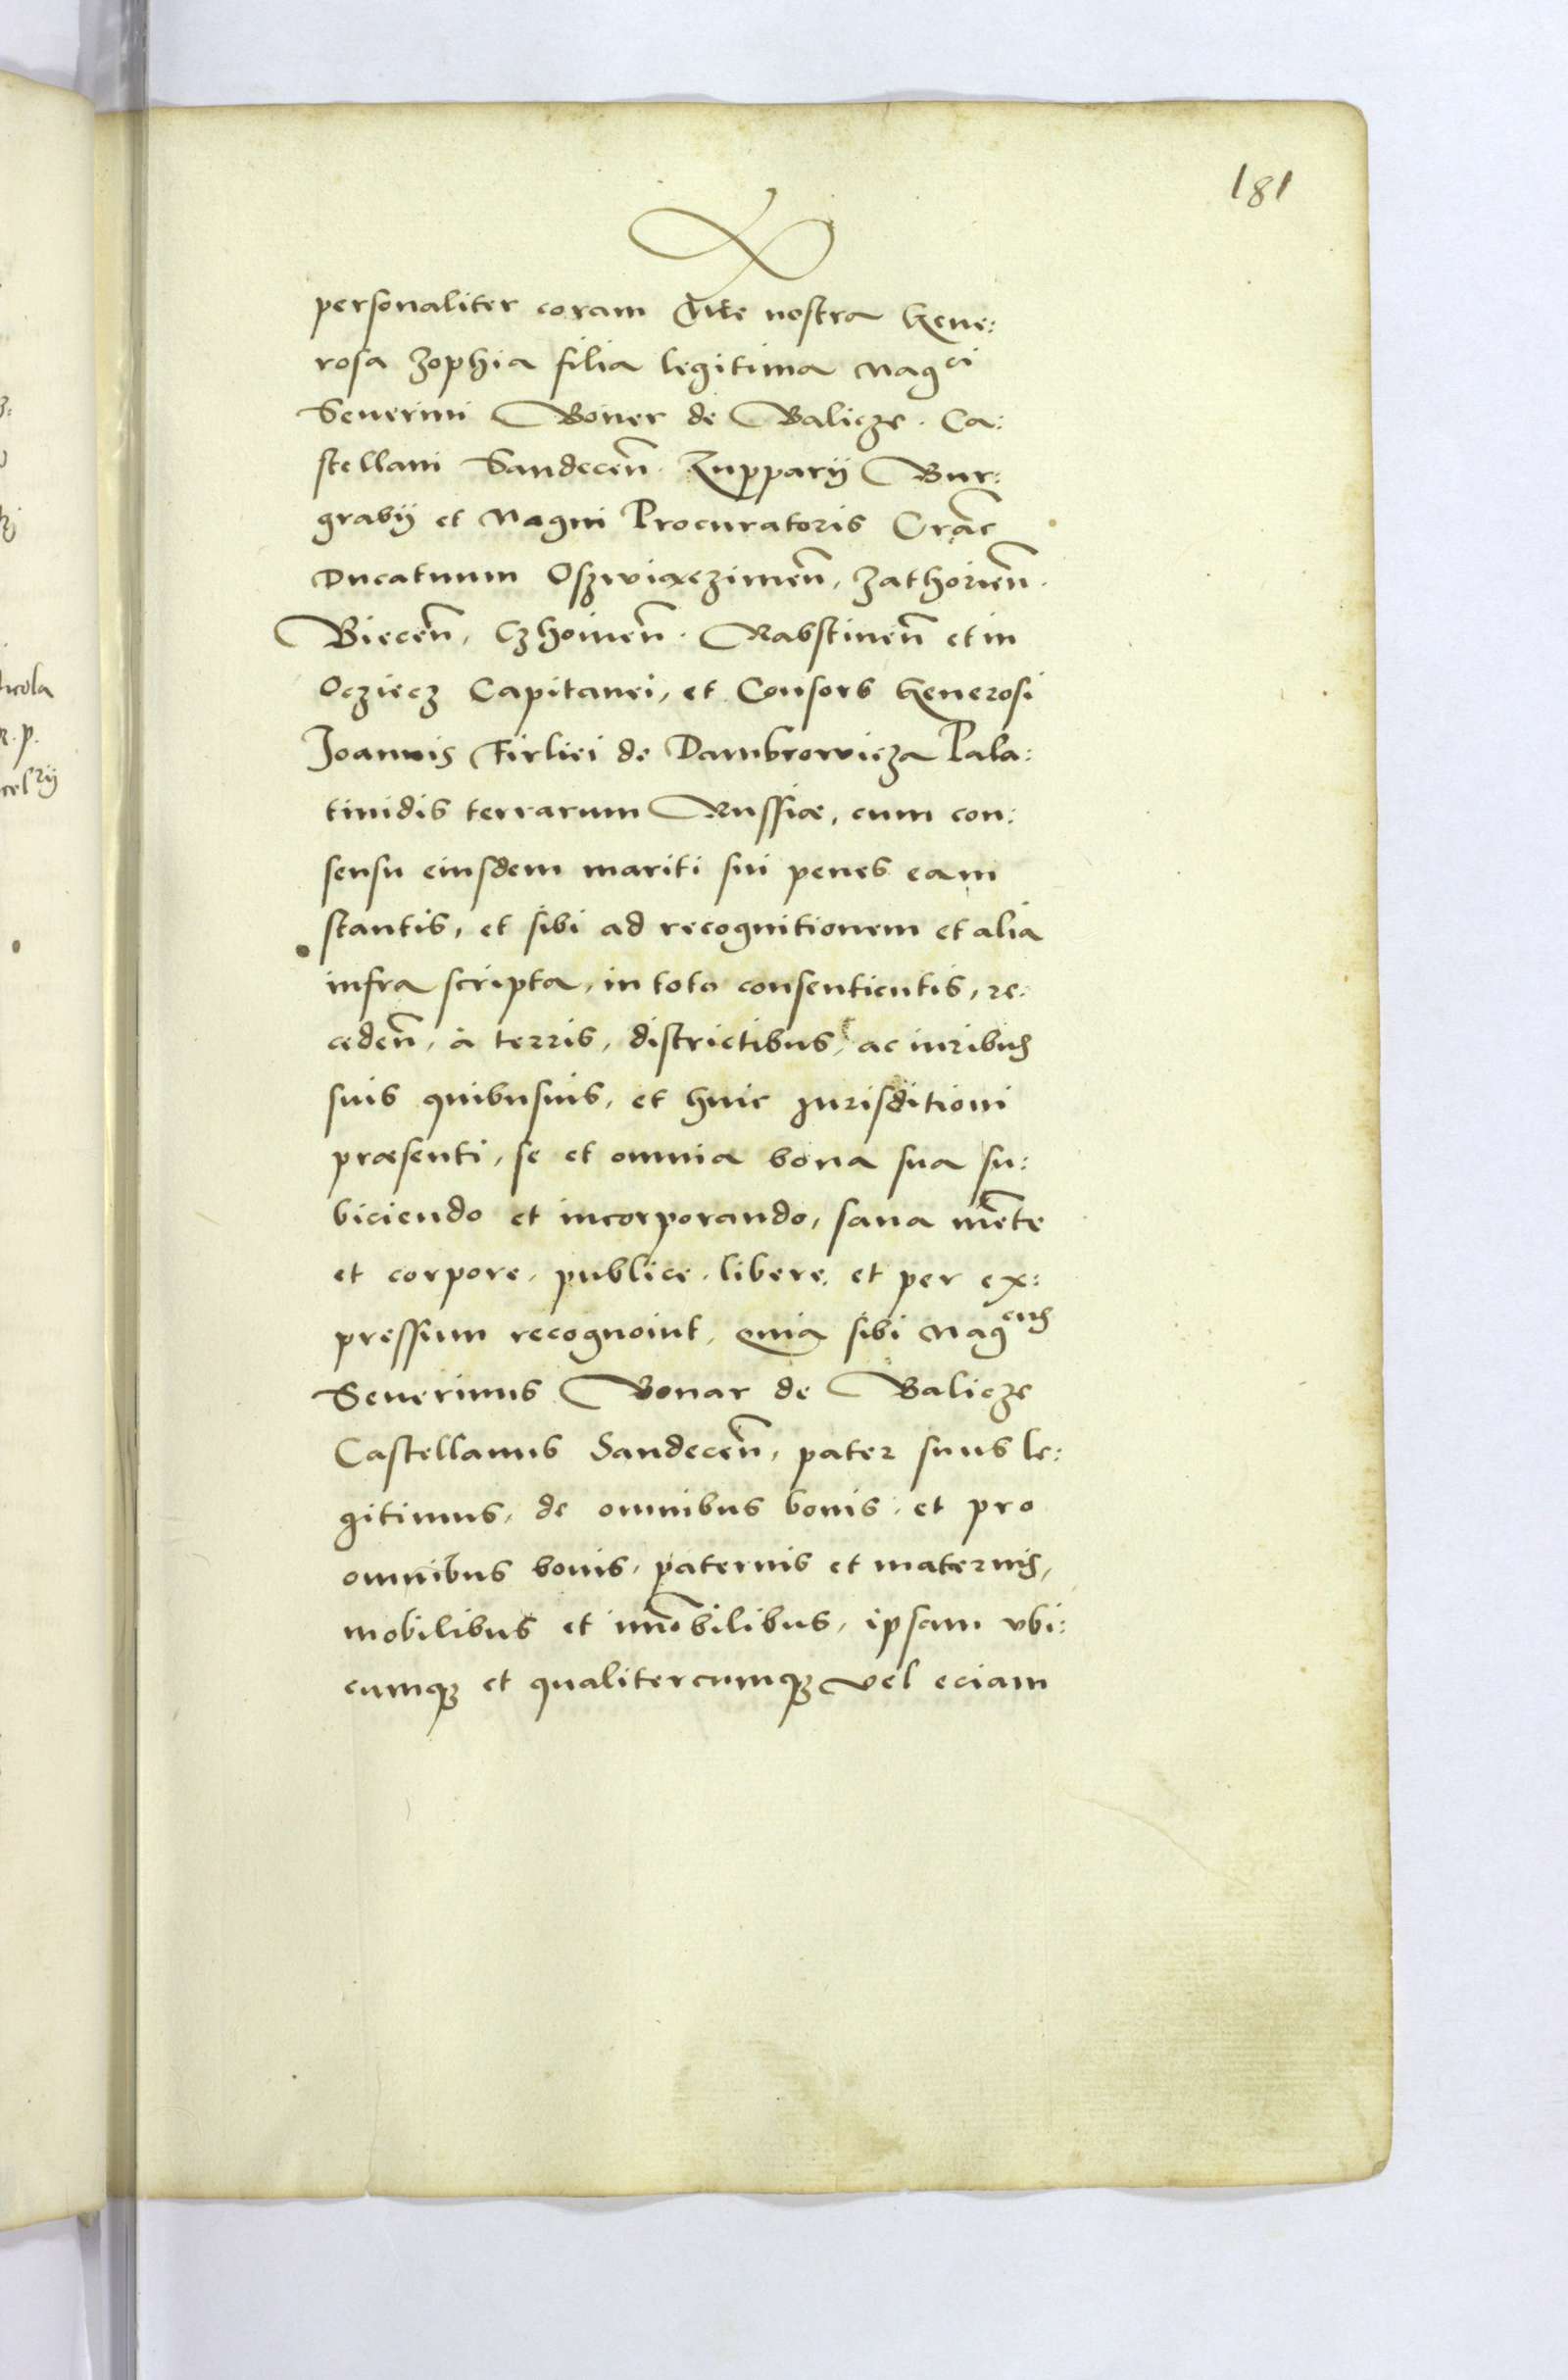 181
personaliter coram Mte nostra Gene:
rosa Zophia filia legitima Mag^ci
Seuerini Boner de Balicze. Ca:
stellani Sandecen̄. Zupparij Bur:
grabij et Magni Procuratoris Crāc
Ducatuum Oszwiæczimen̄, Zathorien̄.
Biecen̄, Czhoinen̄. Rabstinen̄ et in
Ocziecz Capitanei, et Consors Generosi
Joannis Firliei de Dambrowicza Pala:
tinidis terrarum Russiæ, cum con:
sensu eiusdem mariti sui penes eam
stantis, et sibi ad recognitionem et alia
infra scripta, in toto consentientis, re:
ceden̄, à terris, districtibus, ac iuribus
suis quibusuis, et huic Jurisditioni
præsenti, se et omnia bona sua su:
biciendo et incorporando, sana mēte
et corpore, publice, libere, et per ex:
pressum recognouit, Quia sibi Mag^cus
Seuerinus Bonar de Balicze
Castellanus Sandecen̄, pater suus le:
gitimus, de omnibus bonis, et pro
omnibus bonis, paternis et maternis,
mobilibus et im̄obilibus, ipsam vbi:
cumq₃ et qualitercumq₃ vel eciam